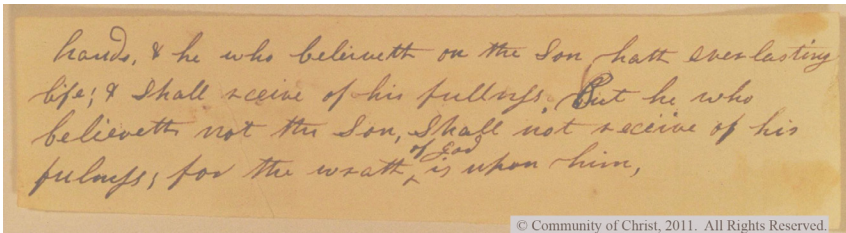 hands, & he who believeth on the Son hath everlasting
life; & shall receive of his fullness. But he who
believeth not the Son, shall not receive of his
of God
fulness; for the wrath ‸ is upon him,
© Community of Christ, 2011. All Rights Reserved.